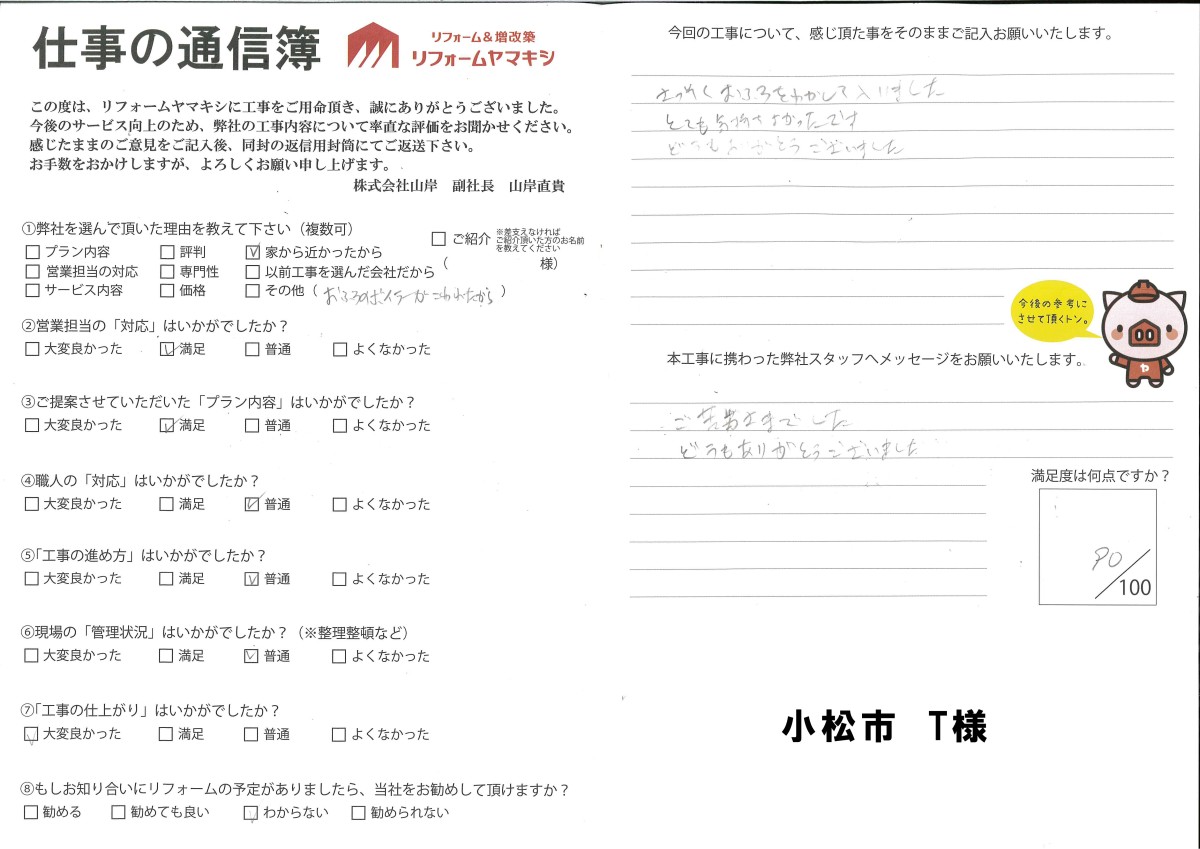 仕事の通信簿
リフォーム&増改築
リフォームヤマキシ
この度は、リフォームヤマキシに工事をご用命頂き、誠にありがとうございました。
今後のサービス向上のため、弊社の工事内容について率直な評価をお聞かせください。
感じたままのご意見をご記入後、同封の返信用封筒にてご返送下さい。
お手数をおかけしますが、よろしくお願い申し上げます。
株式会社山岸 副社長 山岸直貴
①弊社を選んで頂いた理由を教えて下さい（複数可）
□プラン内容 □評判 ☑家から近かったから □ご紹介 ※差支えなければ
ご紹介頂いた方のお名前
を教えてください
□営業担当の対応 □専門性 □以前工事を選んだ会社だから （ 様）
□サービス内容 □価格 □その他（おふろのボイラーがこわれたから）
②営業担当の「対応」はいかがでしたか？
□大変良かった ☑満足 □普通 □よくなかった
③ご提案させていただいた「プラン内容」はいかがでしたか？
□大変良かった ☑満足 □普通 □よくなかった
④職人の「対応」はいかがでしたか？
□大変良かった □満足 ☑普通 □よくなかった
⑤「工事の進め方」はいかがでしたか？
□大変良かった □満足 ☑普通 □よくなかった
⑥現場の「管理状況」はいかがでしたか？（※整理整頓など）
□大変良かった □満足 ☑普通 □よくなかった
⑦「工事の仕上がり」はいかがでしたか？
☑大変良かった □満足 □普通 □よくなかった
⑧もしお知り合いにリフォームの予定がありましたら、当社をお勧めして頂けますか？
□勧める □勧めても良い ☑わからない □勧められない
今回の工事について、感じ頂た事をそのままご記入お願いいたします。
さっそくおふろをわかして入いました
とても気持さよかったです
どうもありがとうございました
今後の参考に
させて頂くトン。
ヤ
本工事に携わった弊社スタッフへメッセージをお願いいたします。
ご苦労さまでした
どうもありがとうございました
満足度は何点ですか？
90/100
小松市 T様